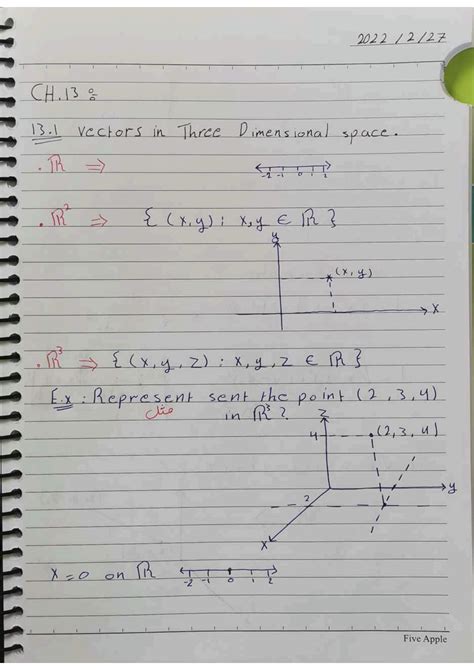 2022/2/27
CH.13 :
13.1 Vectors in Three Dimensional space.
. ℝ ⇒
-2 -1 0 1 2
. ℝ² ⇒ { (x,y) : x,y ∈ ℝ }
y
(x,y)
x
. ℝ³ ⇒ { (x,y,z) : x,y,z ∈ ℝ }
E.x : Represent sent the point (2,3,4)
مثل
in ℝ³?
z
4
(2,3,4)
y
2
x
x=0 on ℝ
-2 -1 0 1 2
Five Apple